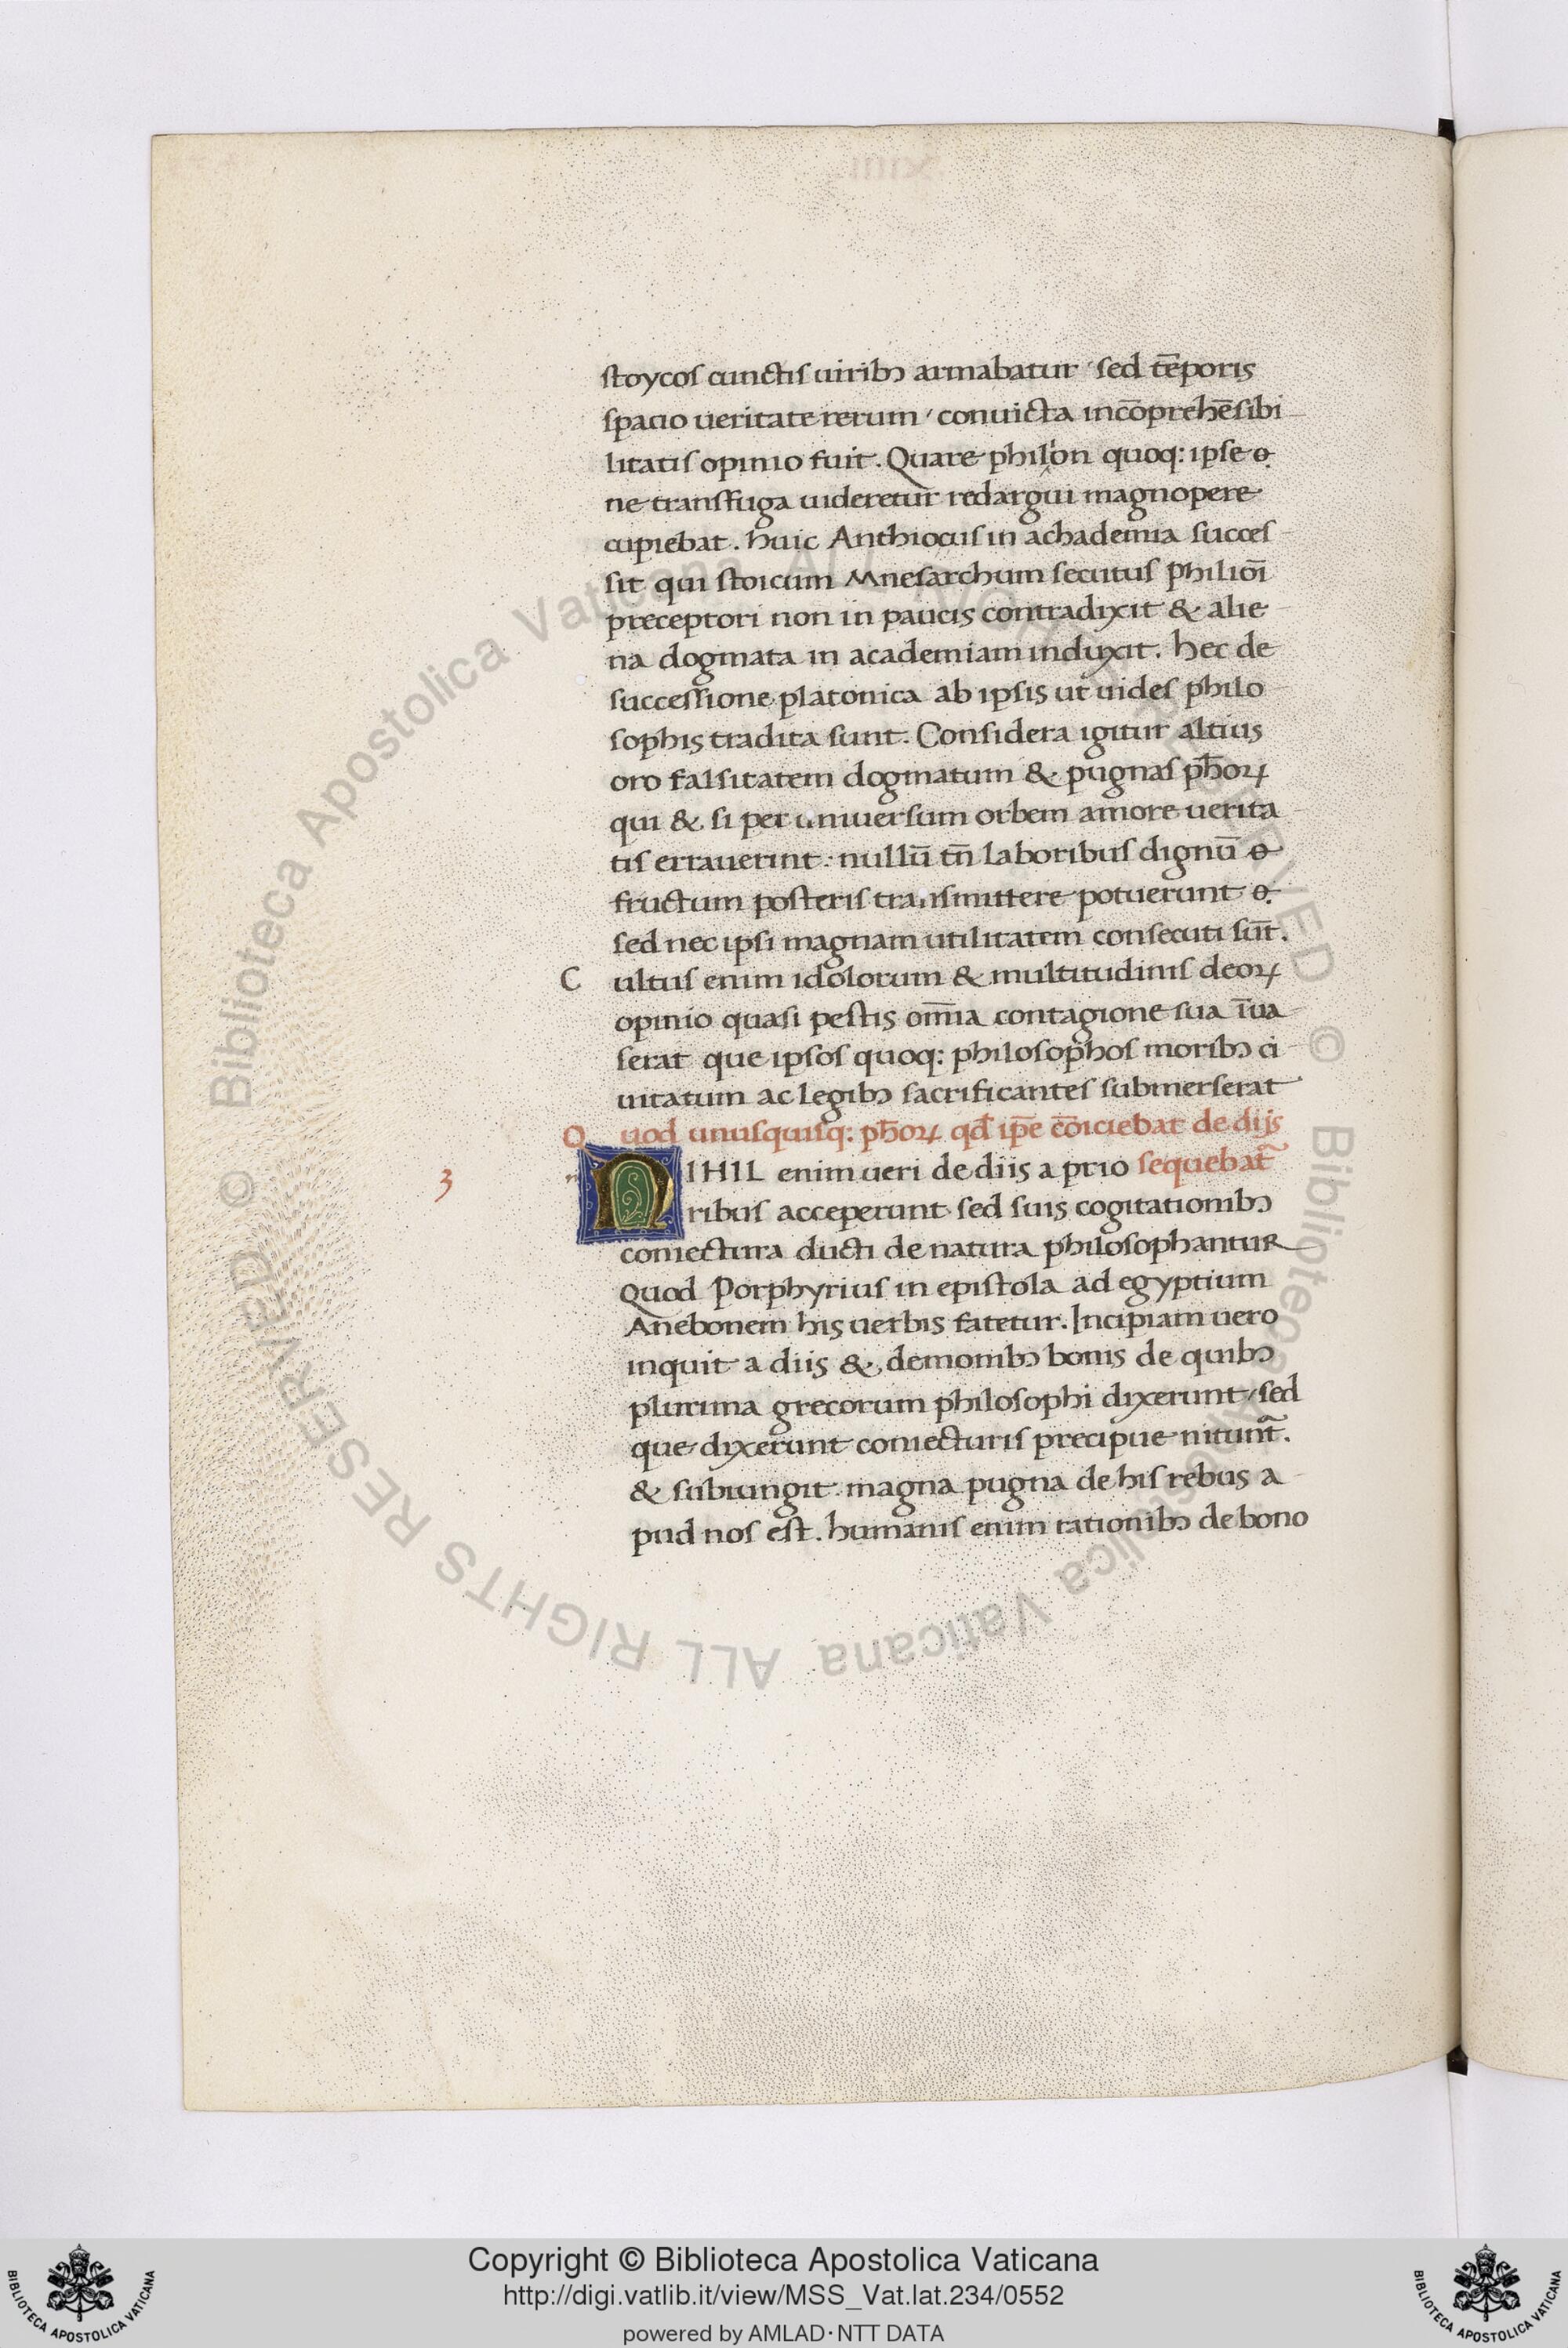 stoycos cunctis uiribꝫ armabatur / sed tēporis
spacio ueritate rerum / conuicta incōprehēsibi
litatis opinio fuit. Quare philon quoq: ipse
ne transfuga uideretur redargui magnopere
cupiebat. huic Anthiocus in achademia succes
sit qui stoicum Mnesarchum secutus philiōi
preceptori non in paucis contradixit & alie
na dogmata in academiam induxit. hec de
successione platonica ab ipsis ut uides philo
sophis tradita sunt. Considera igitur altius
oro falsitatem dogmatum & pugnas ph̄oꝝ
qui & si per uniuersum orbem amore uerita
tis errauerint: nullū tn̄ laboribus dignū
fructum posteris transmittere potuerunt
sed nec ipsi magnam utilitatem consecuti sūt.
Cultus enim idolorum & multitudinis deoꝝ
opinio quasi pestis om̄ia contagione sua īua
serat que ipsos quoq: philosophos moribꝫ ci
uitatum ac legibꝫ sacrificantes submerserat
Quod unusquisq: ph̄oꝝ qd̄ ip̄e cōiciebat de dijs
sequebat̃
3
NIHIL enim ueri de diis a prio
ribus acceperunt sed suis cogitationibꝫ
coniectura ducti de natura philosophantur
Quod Porphyrius in epistola ad egyptium
Anebonem his uerbis fatetur. Incipiam uero
inquit a diis & demonibꝫ bonis de quibꝫ
plurima grecorum philosophi dixerunt / sed
que dixerunt coniecturis precipue nitunt̃.
& subiungit: magna pugna de his rebus a
pud nos est. humanis enim rationibꝫ de bono
© Biblioteca Apostolica Vaticana ALL RIGHTS RESERVED © Biblioteca Apostolica Vaticana ALL RIGHTS RESERVED
Copyright © Biblioteca Apostolica Vaticana
http://digi.vatlib.it/view/MSS_Vat.lat.234/0552
powered by AMLAD·NTT DATA
BIBLIOTECA APOSTOLICA VATICANA
BIBLIOTECA APOSTOLICA VATICANA